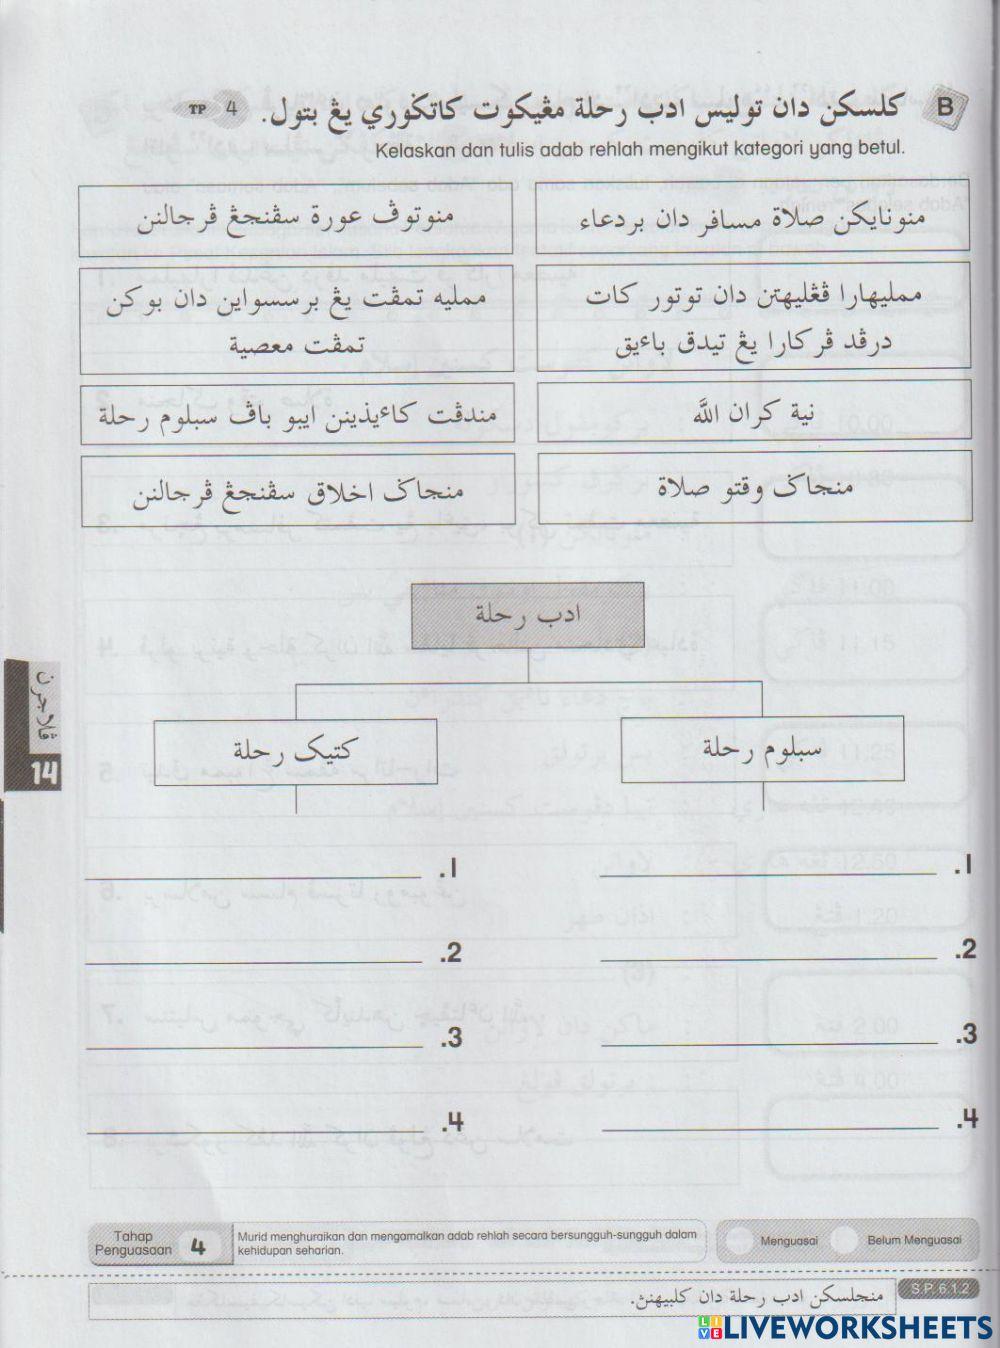 B كلسكن دان توليس ادب رحلة مڠيکوت كاتݢوري يڠ بتول. TP 4
Kelaskan dan tulis adab rehlah mengikut kategori yang betul.
منونايكن صلاة مسافر دان بردعاء
منوتوڤ عورة سڤنجڠ ڤرجالنن
ممليهارا ڤڠليهتن دان توتور كات
درڤد ڤركارا يڠ تيدق باءيق
ممليه تمڤت يڠ برسسواين دان بوكن
تمڤت معصية
نية كران الله
مندڤت كاءيذينن ايبو باڤ سبلوم رحلة
منجاݢ وقتو صلاة
منجاݢ اخلاق سڤنجڠ ڤرجالنن
ادب رحلة
سبلوم رحلة
كتيک رحلة
.1
.2
.3
.4
.1
.2
.3
.4
ڤلاجرن
14
Tahap
Penguasaan 4
Murid menghuraikan dan mengamalkan adab rehlah secara bersungguh-sungguh dalam
kehidupan seharian.
Menguasai
Belum Menguasai
S.P. 6.1.2
منجلسكن ادب رحلة دان كلبيهنڽ.
LIVEWORKSHEETS